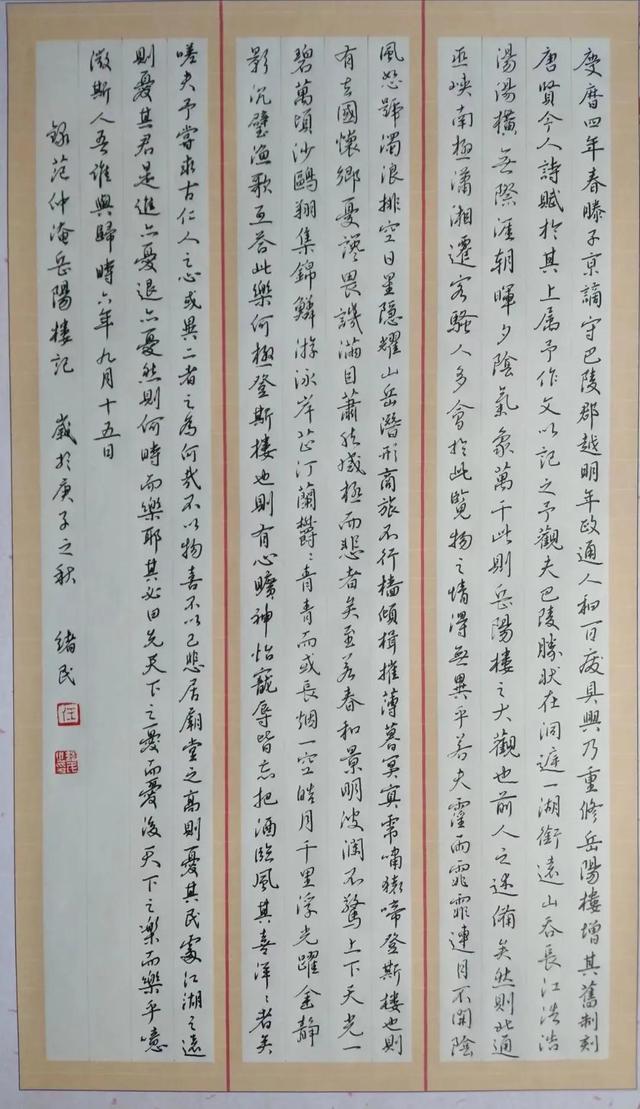 慶曆四年春滕子京謫守巴陵郡越明年政通人和百废具興乃重修岳陽樓增其舊制刻
唐賢今人詩賦於其上属予作文以記之予觀夫巴陵勝狀在洞庭一湖銜遠山吞長江浩浩
湯湯橫無際涯朝暉夕陰氣象萬千此則岳陽樓之大觀也前人之述備矣然則北通
巫峽南極瀟湘遷客騷人多會於此覽物之情得無異乎若夫霪雨霏霏連月不開陰
風怒號濁浪排空日星隱耀山岳潛形商旅不行檣傾楫摧薄暮冥冥虎嘯猿啼登斯樓也則
有去國懷鄉憂讒畏譏滿目蕭然感極而悲者矣至若春和景明波瀾不驚上下天光一
碧萬頃沙鷗翔集錦鱗游泳岸芷汀蘭欝〻青青而或長烟一空皓月千里浮光躍金静
影沉璧漁歌互答此樂何極登斯樓也則有心曠神怡寵辱皆忘把酒臨風其喜洋〻者矣
嗟夫予嘗求古仁人之心或異二者之為何哉不以物喜不以己悲居廟堂之高則憂其民處江湖之遠
則憂其君是進亦憂退亦憂然則何時而樂耶其必曰先天下之憂而憂後天下之樂而樂乎噫
微斯人吾誰與歸時六年九月十五日
錄范仲淹岳陽樓記 歲於庚子之秋 緒民
任